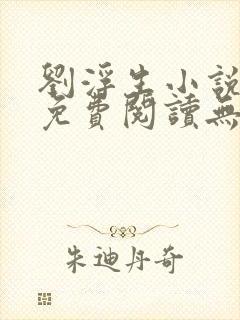 劉浮生小說
免費閱讀無
朱迪丹奇